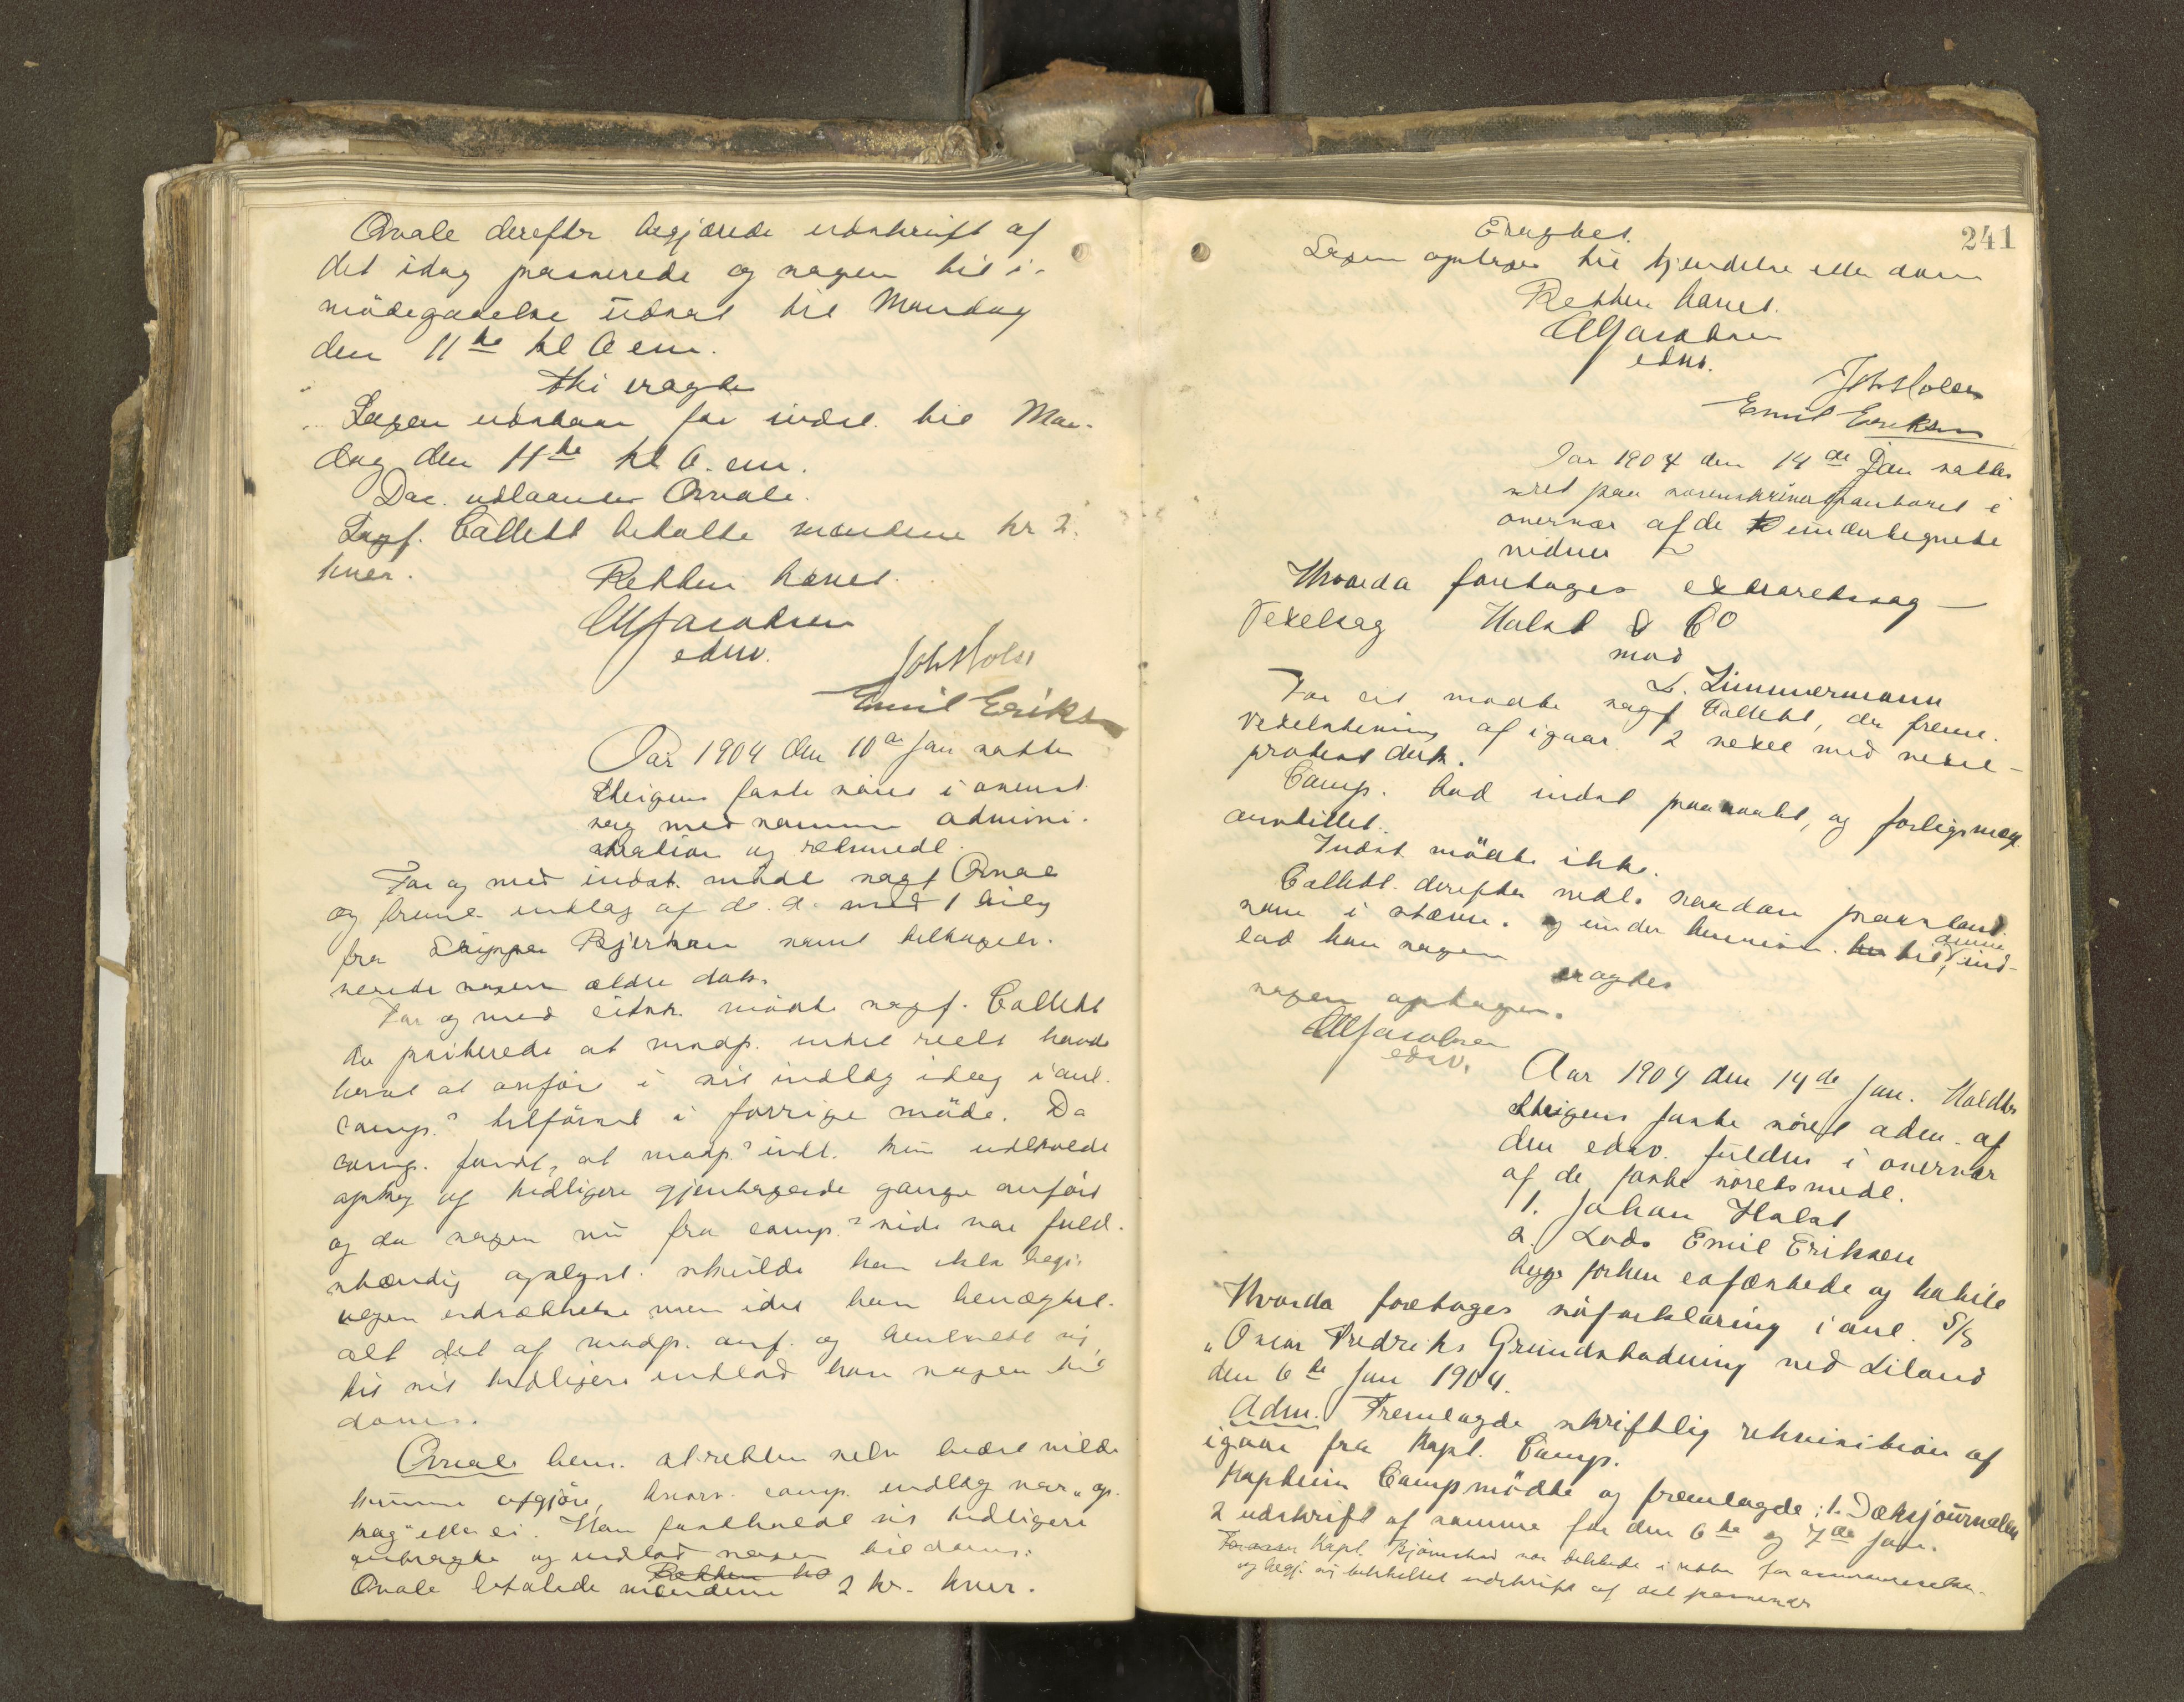 Qvale derefter begjærede udskrift af
det idag passerede og sagen til i-
mödegaaelse udsat til Mandag
den 11te kl 6 em.
thi eragtes
Sagen udstaar for indst. til Man-
dag den 11te kl 6. em.
Doc. udlaantes Qvale.
Sagf. Collett betalte mændene kr 2.
hver.
Retten hævet.
Alf Jacobsen
edsv.
Joh Holst
Emil Eriksen
Aar 1904 den 10de Jan sattes
Steigens faste söret i avenst.
sag med samme admini-
stration og retsmedl.
For og med indst. mödte sagf Qvale
og freml. indlæg af d. d. med 1 bilag
fra Skipper Bjerkan samt tilbagele-
verede sagens ældre dok.
For og med citst. mödte sagf. Collett
der paaberede at modp. intet reelt havde
havt at anföre i sit indlæg idag i anl.
comp.s tilförsel i forrige möde. Da
comp. fandt, at modp.s indl. kun indeholdt
opkog af tidligere gjentagende gange anfört
og da sagen nu fra comp.s side var fuld-
stændig oplyst. skulde han ikke begj.
nogen udsættelse men idet han benægtet
alt det af modp. anf. og henholdt sig
til sit tidligere indlod han sagen til
doms.
Qvale bem. at retten selv bedst vilde
kunne afgjöre, hvorv. comp. indlæg var „op-
kog" eller ei. Han fastholdt sit tidligere
anbragte og indlod sagen til doms.
Retten hæ
Qvale betalede mændene 2 kr. hver.
241
Eragtet.
Sagen optages til kjendelse eller dom
Retten hævet.
Alf Jacobsen
edsv.
Joh Holst
Emil Eriksen
Aar 1904 den 14de Jan sattes
ret paa sorenskriverkontoret i
overvær af de 2 undertegnede
vidner
Hvorda foretoges extraretssag —
Vexelsag Halst & Co
mod
L. Zimmermann
For cit mödte sagf Collett, der freml.
vexelstevning af igaar. 2 vexel med vexel-
protest derh.
Comp. lod indst paaraabt, og forligsmægl.
anstillet.
Indst mödte ikke.
Collett derefter nedl. saadan paastand
som i stævn. og under henvisn. til denne ind-
lod han sagen
eragtes
sagen optagen.
Alf Jacobsen
edsv.
Aar 1904 den 14de Jan. Holdtes
Steigens faste söret adm. af
den edsv. fuldm i overvær
af de faste söretsmedl.
1. Johan Holst
2. Lods Emil Eriksen
begge forhen eafæstede og habile
Hvorda foretages söforklaring i anl. S/S
„Oscar Fredriks Grundstödning ved Liland
den 6te Jan 1904.
Adm. Fremlagde skriftlig rekvisition af
igaar fra Kapt. Camp.
Kaptein Camp mödte og fremlagde: 1. Dæksjournalen
2 udskrift af samme for den 6te og 7de Jan.
Kapt. Bjömstad var tilstede i retten for assuranceselsk.
og begj. sig tilstillet udskrift af det passerede